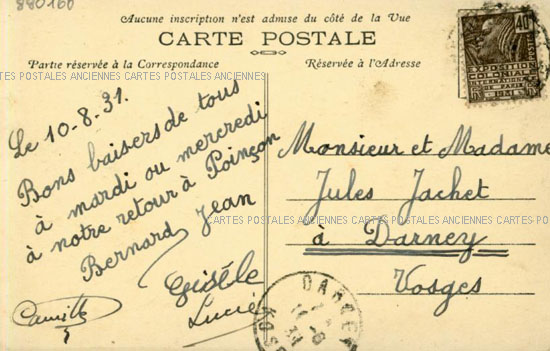 880160
Aucune inscription n'est admise du côté de la Vue
CARTE POSTALE
Partie réservée à la Correspondance
Réservée à l'Adresse
CARTES POSTALES ANCIENNES CARTES POSTALES ANCIENNES CARTES POSTALES ANCIENNES
Le 10-8-31.
Bons baisers de tous
à mardi ou mercredi
à notre retour à Poinçon
Bernard Jean
Gisèle
Lucie
Camille
40c
EXPOSITION
COLONIALE
INTERNATIONALE
DE PARIS
1931
Monsieur et Madame
Jules Jachet
à Darney
Vosges
CARTES POSTALES ANCIENNES CARTES POSTALES ANCIENNES CARTES POSTALES
DARNEY
11-8
31
VOSGES